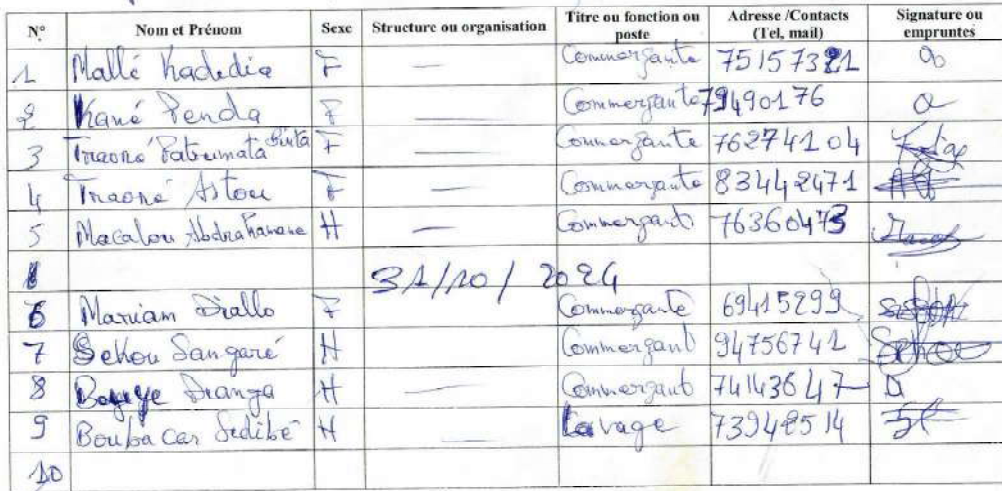 N° Nom et Prénom Sexe Structure ou organisation Titre ou fonction ou poste Adresse /Contacts (Tel, mail) Signature ou empruntes
1 Mallé Kadedia F — Commerçante 75157321
2 Kané Penda F — Commerçante 79490176
3 Traoré Fatoumata Binta F — Commerçante 76274104
4 Traoré Astou F — Commerçante 83442471
5 Macalou Abdrahamane H — Commerçant 76360473
31/10/2024
6 Mariam Diallo F Commerçante 69415299
7 Sekou Sangaré H Commerçant 94756742 Sekou
8 Dranga H — Commerçant 74143647
9 Boubacar Sidibé H — Lavage 73942514
10